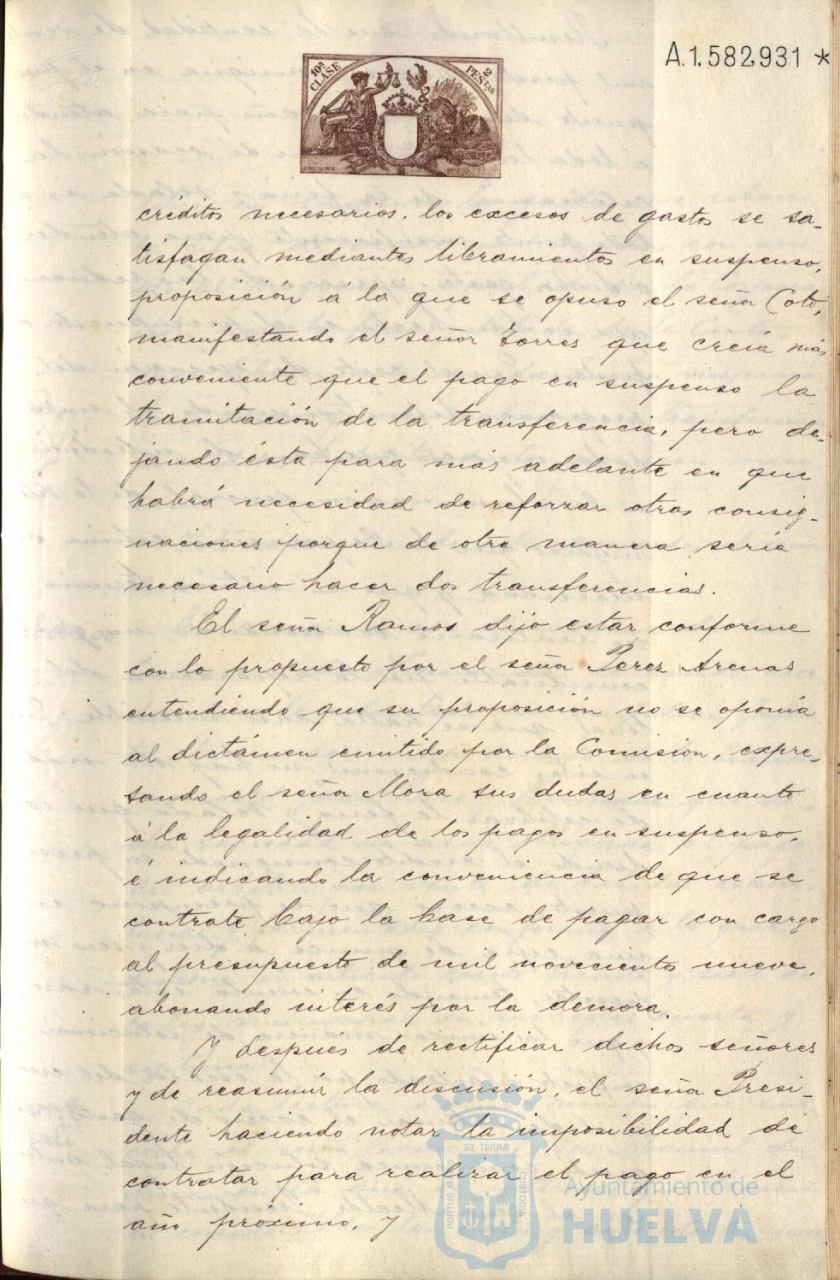 A.1.582,931 *
10ª CLASE 2 PESTAS
créditos necesarios. los excesos de gastos se sa-
tisfagan mediantes libramientos en suspenso,
proposición á la que se opuso el señor Coto,
manifestando el señor Torres que creía más
conveniente que el pago en suspenso la
tramitación de la transferencia, pero de-
jando ésta para más adelante en que
habrá necesidad de reforzar otras consig-
naciones porque de otra manera sería
necesario hacer dos transferencias.
El señor Ramos dijo estar conforme
con lo propuesto por el señor Perez Arenas
entendiendo que su proposición no se oponía
al dictámen emitido por la Comisión, expre-
sando el señor Mora sus dudas en cuanto
á la legalidad de los pagos en suspenso,
é indicando la conveniencia de que se
contrate bajo la base de pagar con cargo
al presupuesto de mil novecientos nueve,
abonando interés por la demora.
Y después de rectificar dichos señores
y de reasumir la discusión, el señor Presi-
dente haciendo notar la imposibilidad de
contratar para realizar el pago en el
año próximo, y
PORTUS MARIS ET TERRÆ CUSTODIA
Ayuntamiento de
HUELVA